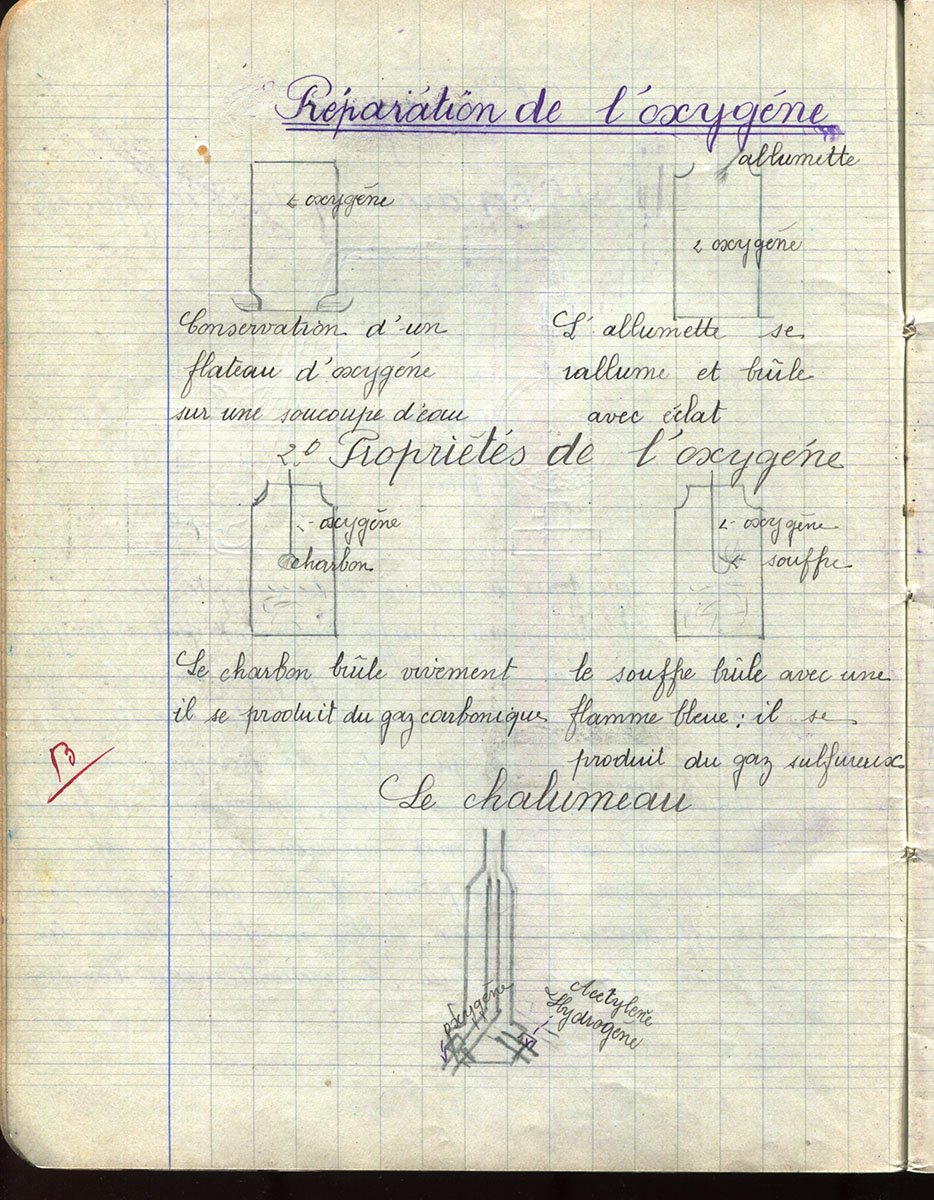 Préparation de l'oxygéne
allumette
oxygéne
oxygéne
Conservation d'un
flateau d'oxygéne
sur une soucoupe d'eau
L'allumette se
rallume et brûle
avec éclat
2º Propriétés de l'oxygéne
oxygéne
charbon
oxygéne
souffre
Le charbon brûle vivement
il se produit du gaz carbonique
le souffre brûle avec une
flamme bleue : il se
produit du gaz sulfureux
B
Le chalumeau
oxygéne
Acétylène
Hydrogéne